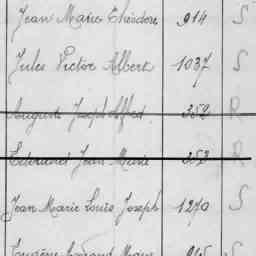 Jean Marie Théodore 914 S
Jules Victor Albert 1037 S
Auguste Joseph Alfred 352 R
Jean Marie 353 R
Jean Marie Louis Joseph 1270 S
S